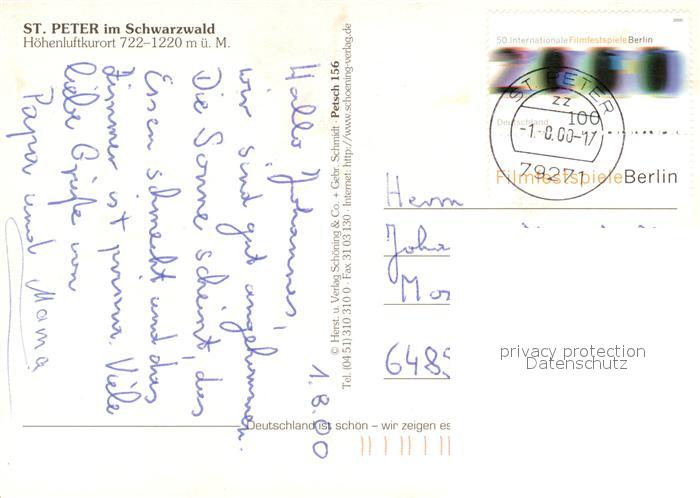 ST. PETER im Schwarzwald
Höhenluftkurort 722–1220 m ü. M.
1.8.00
Hallo Johannes,
wir sind gut angekommen.
Die Sonne scheint, das
Essen schmeckt und das
Zimmer ist prima. Viele
liebe Grüße von
Papa und Mama.
© Herst. u. Verlag Schöning & Co. + Gebr. Schmidt · Petsch 156
Tel. (04 51) 310 310 0 · Fax 31 03 130 · Internet: http://www.schoening-verlag.de
50. Internationale Filmfestspiele Berlin
2000
Deutschland
100
Filmfestspiele Berlin
ST. PETER
zz
-17
79271
Herrn
Joha
Mo
648
privacy protection
Datenschutz
Deutschland ist schön – wir zeigen es